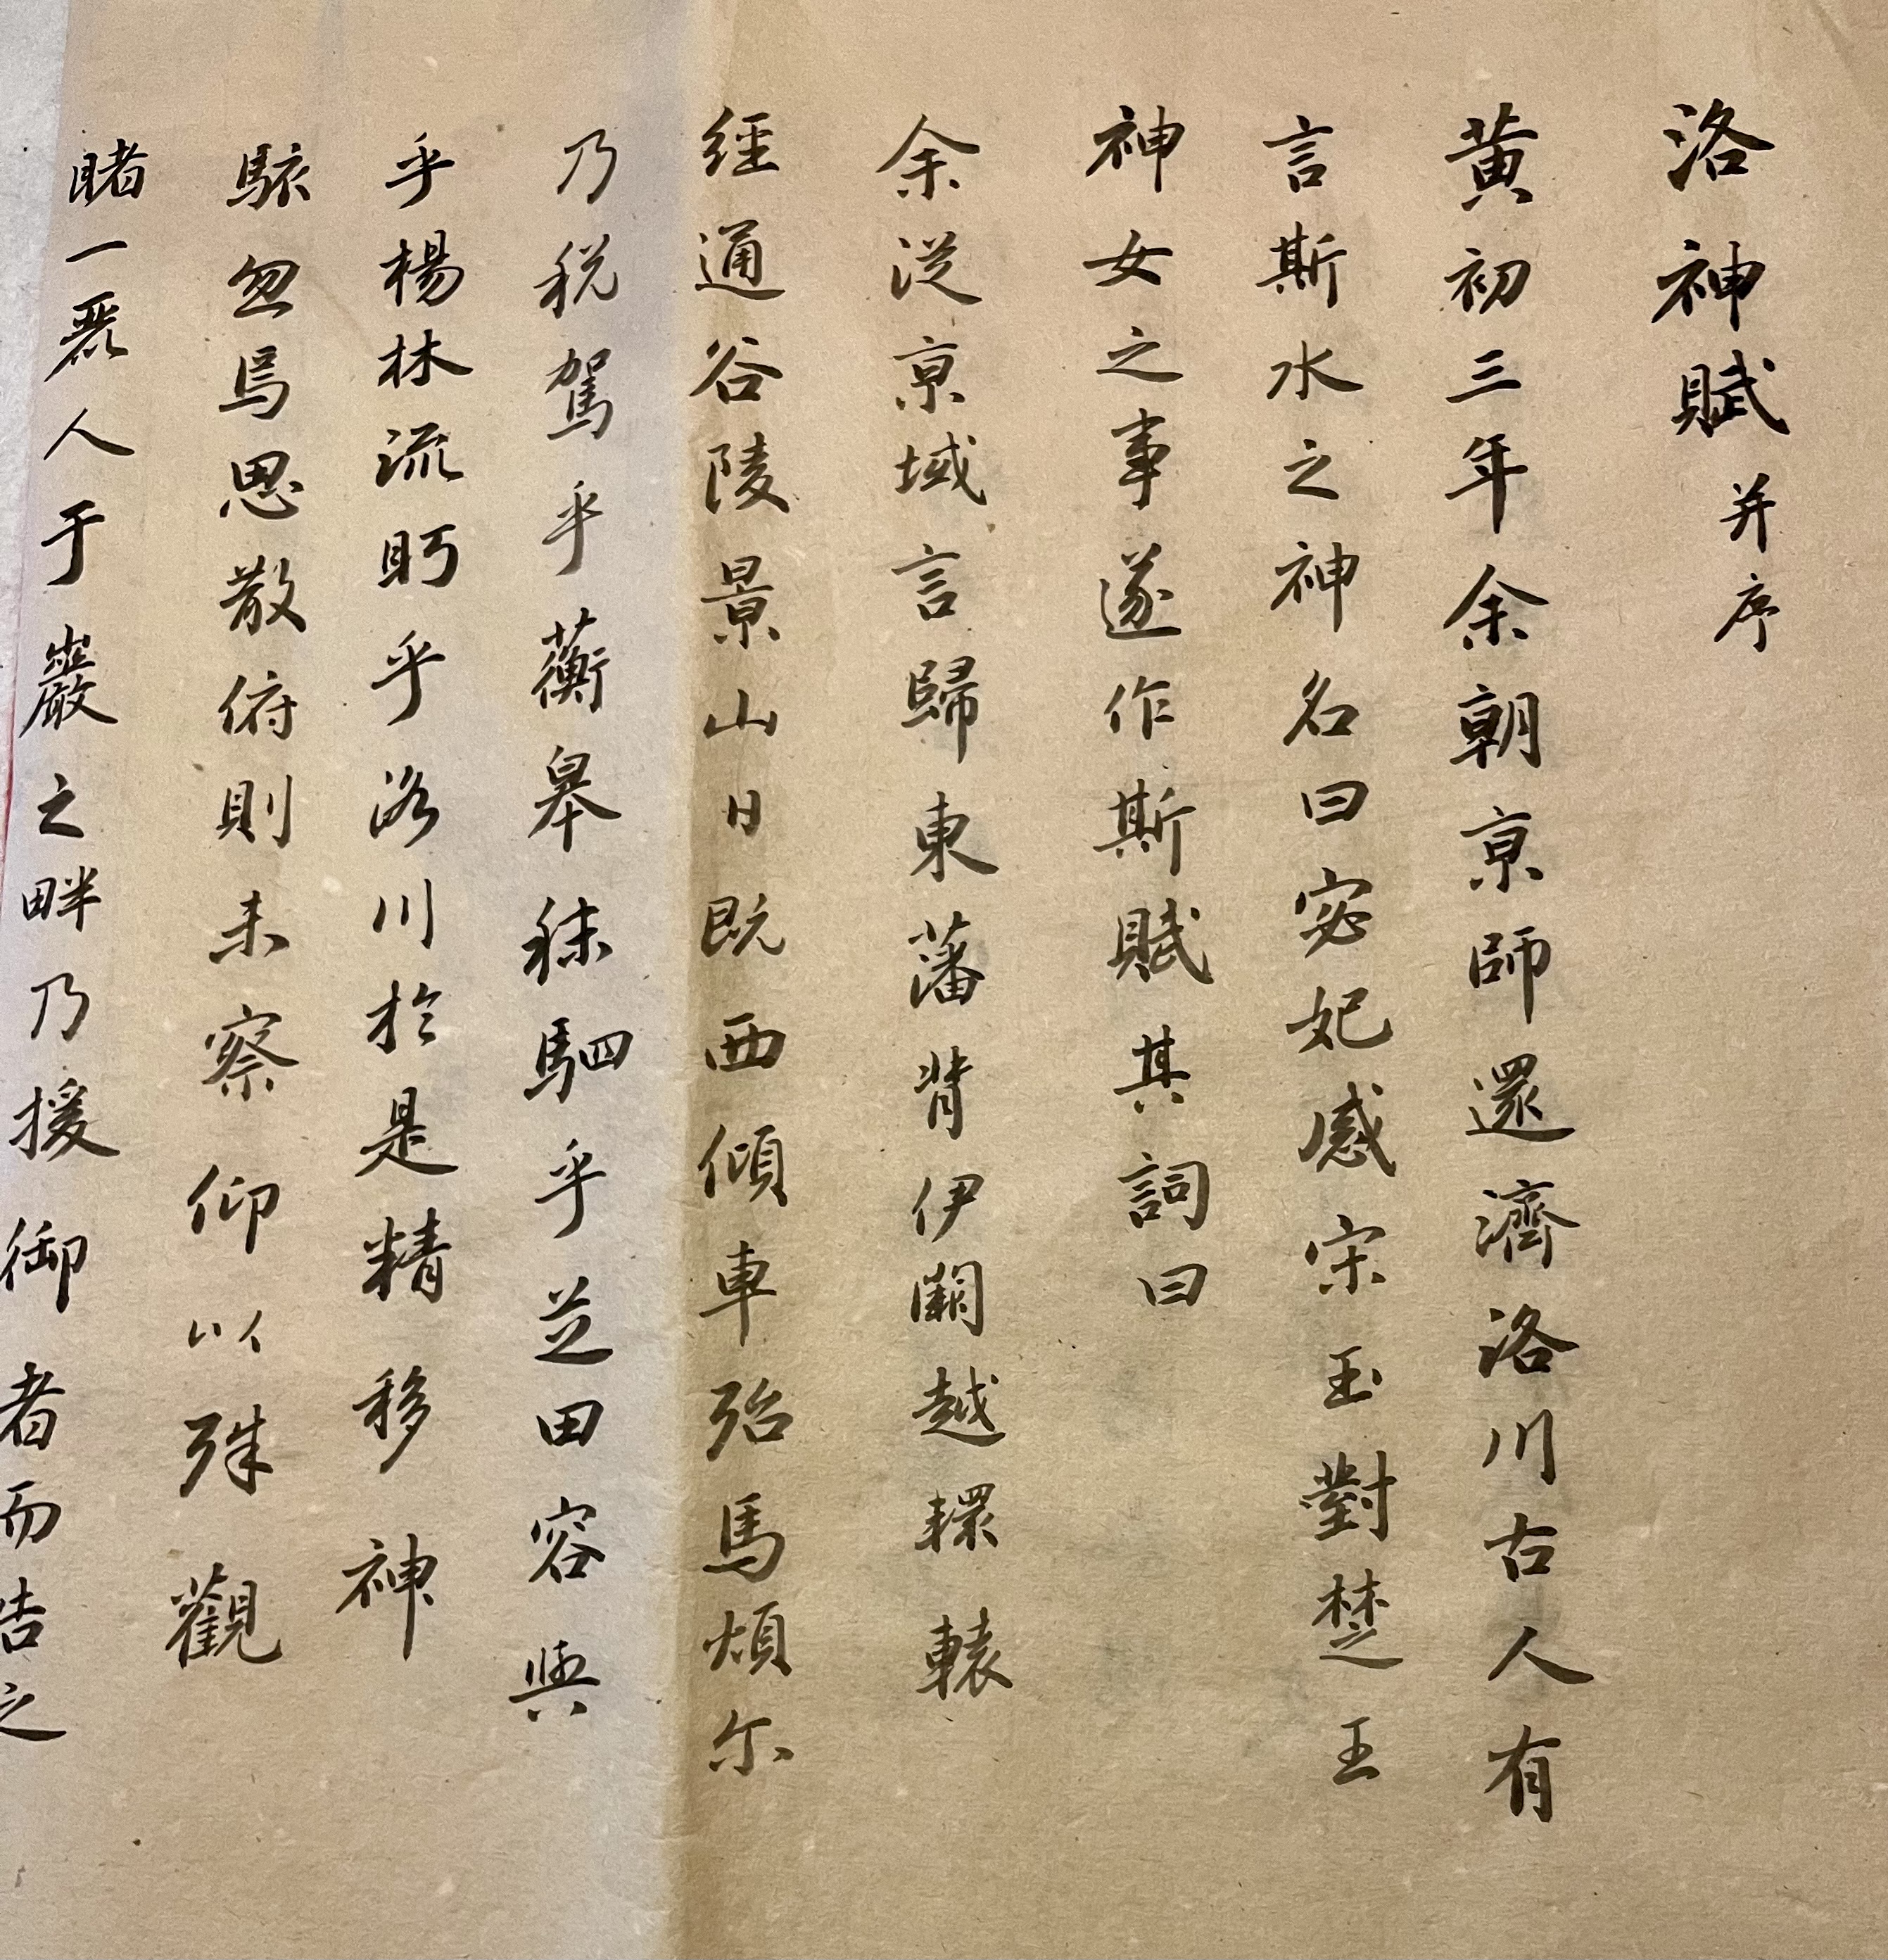 洛神賦并序
黄初三年余朝京師還濟洛川古人有
言斯水之神名曰宓妃感宋玉對楚王
神女之事遂作斯賦其詞曰
余従京域言歸東藩背伊闕越轘轅
經通谷陵景山日既西傾車殆馬煩尔
乃税駕乎蘅皋秣駟乎芝田容與
乎楊林流眄乎洛川於是精移神
駭忽焉思散俯則未察仰以殊觀
睹一麗人于巖之畔乃援御者而告之